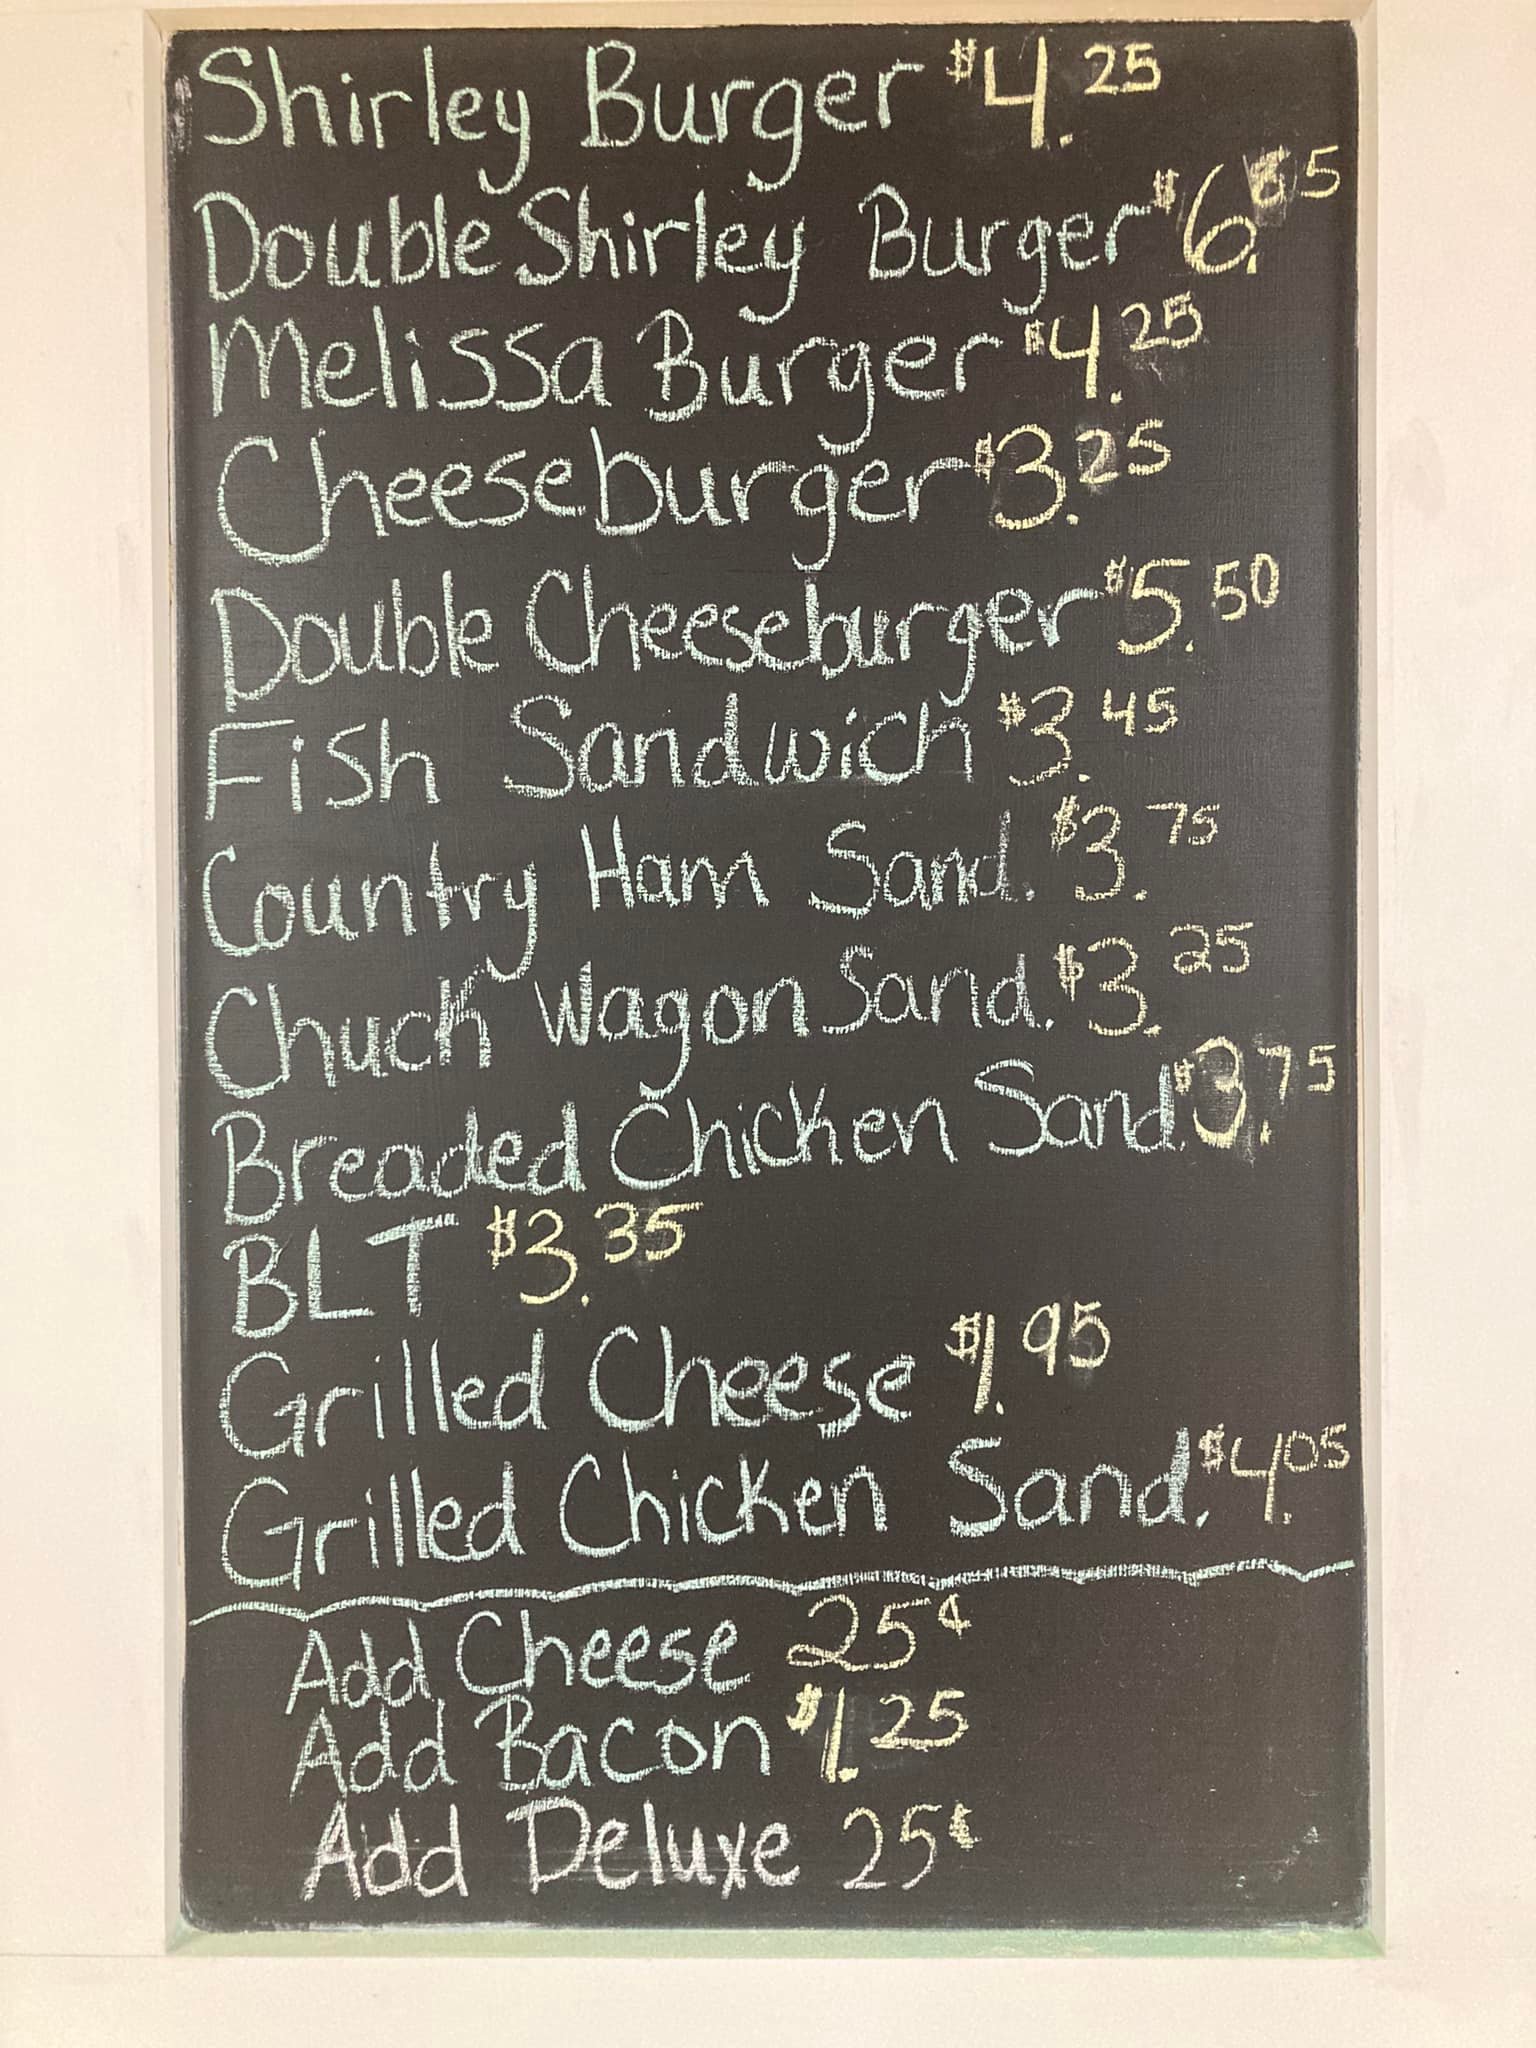 Shirley Burger $4.25
Double Shirley Burger
Melissa Burger $4.25
Cheeseburger $3.25
Double Cheeseburger $5.50
Fish Sandwich $3.45
Country Ham Sand. $3.75
Chuck Wagon Sand. $3.25
Breaded Chicken Sand. $3.75
BLT $3.35
Grilled Cheese $1.95
Grilled Chicken Sand. $4.05
Add Cheese 25¢
Add Bacon $1.25
Add Deluxe 25¢